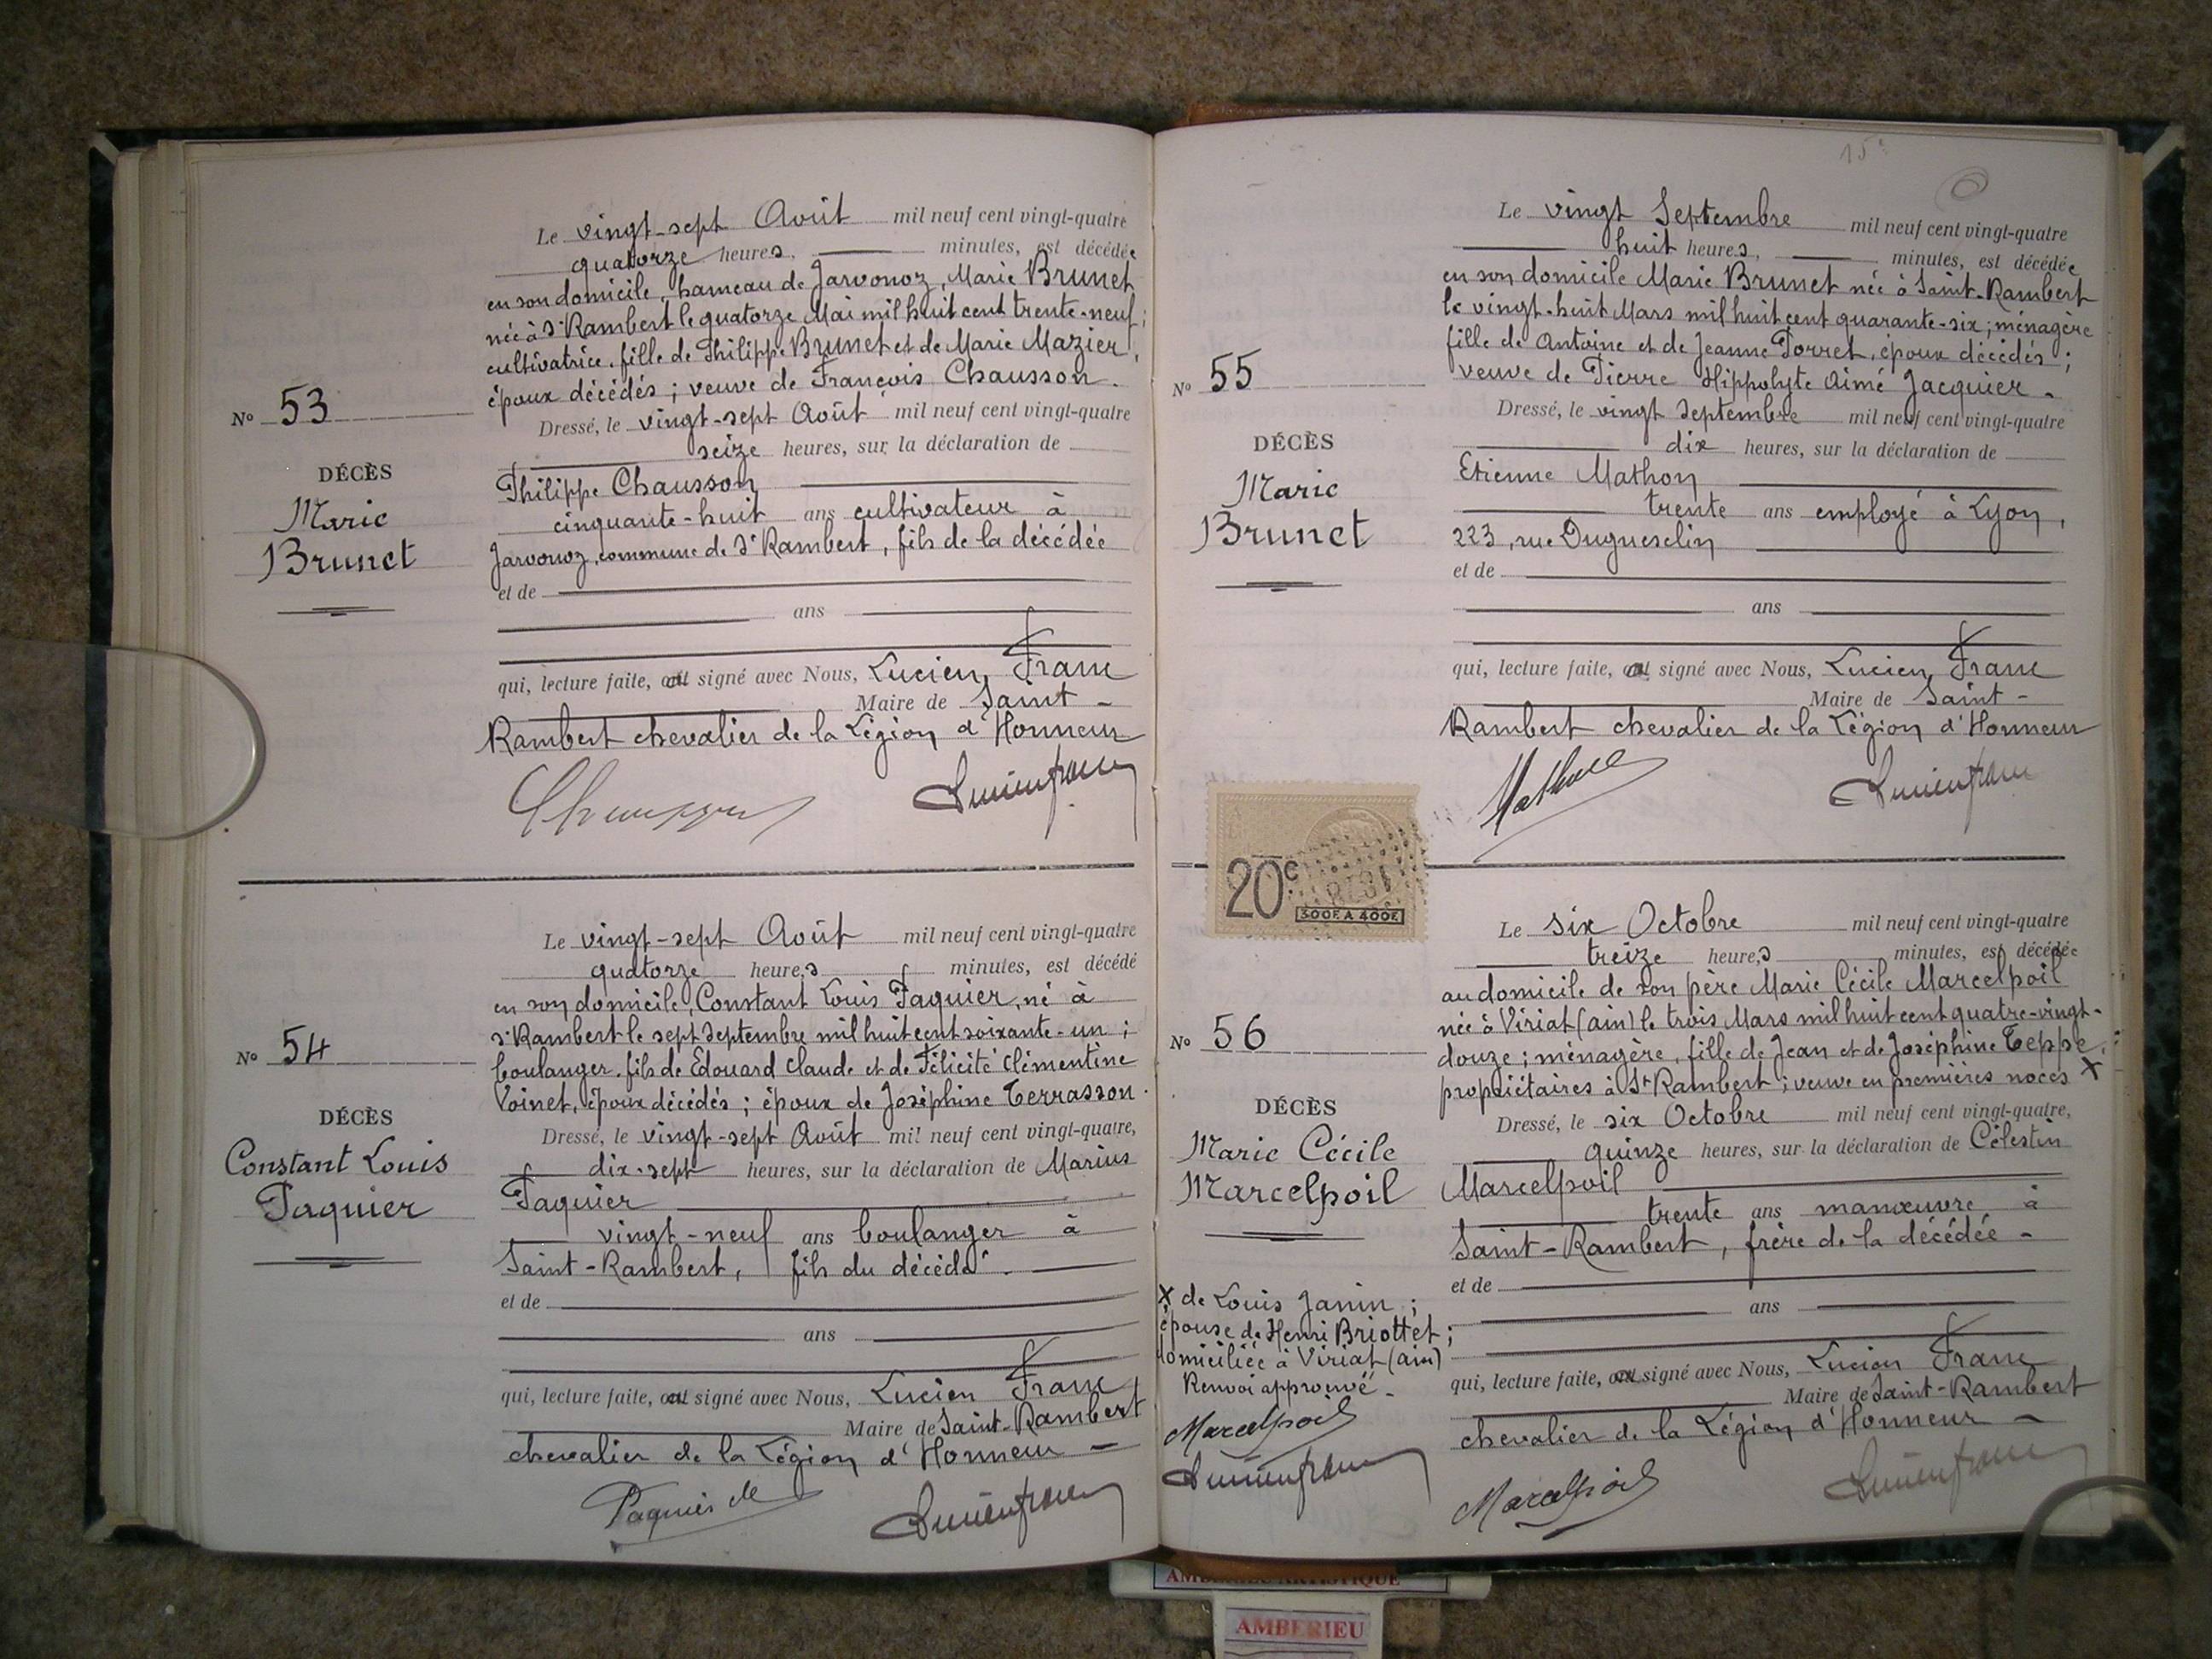 Le vingt-sept Août mil neuf cent vingt-quatre
quatorze heures, minutes, est décédée
en son domicile, hameau de Jarvonoz, Marie Brunet
née à St Rambert le quatorze Mai mil huit cent trente-neuf ;
cultivatrice, fille de Philippe Brunet et de Marie Mazier,
époux décédés ; veuve de François Chausson.
No 53
Dressé, le vingt-sept Août mil neuf cent vingt-quatre
seize heures, sur la déclaration de
DÉCÈS
Philippe Chausson
Marie
cinquante-huit ans cultivateur à
Brunet
Jarvonoz, commune de St Rambert, fils de la décédée
et de
ans
qui, lecture faite, a signé avec Nous, Lucien Franc
Maire de Saint-
Rambert chevalier de la Légion d'Honneur
Lucien Franc
Le vingt-sept Août mil neuf cent vingt-quatre
quatorze heures minutes, est décédé
en son domicile, Constant Louis Paquier, né à
St Rambert le sept Septembre mil huit cent soixante-un ;
No 54
boulanger, fils de Edouard Claude et de Félicité Clémentine
Voinet, époux décédés ; époux de Joséphine Terrasson.
DÉCÈS
Dressé, le vingt-sept Août mil neuf cent vingt-quatre,
Constant Louis
dix-sept heures, sur la déclaration de Marius
Paquier
Paquier
vingt-neuf ans boulanger à
Saint-Rambert, fils du décédé.
et de
ans
qui, lecture faite, a signé avec Nous, Lucien Franc,
Maire de Saint-Rambert
chevalier de la Légion d'Honneur -
Paquier
Lucien Franc
15
Le vingt Septembre mil neuf cent vingt-quatre
huit heures, minutes, est décédée
en son domicile Marie Brunet née à Saint-Rambert
le vingt-huit Mars mil huit cent quarante-six ; ménagère
fille de Antoine et de Jeanne Porret, époux décédés ;
No 55
veuve de Pierre Hippolyte Aimé Jacquier.
Dressé, le vingt Septembre mil neuf cent vingt-quatre
DÉCÈS
dix heures, sur la déclaration de
Marie
Etienne Mathon
Brunet
trente ans employé à Lyon,
223, rue Duguesclin
et de
ans
qui, lecture faite, a signé avec Nous, Lucien Franc
Maire de Saint-
Rambert chevalier de la Légion d'Honneur
Mathon
Lucien Franc
20c
300F A 400F
Le six Octobre mil neuf cent vingt-quatre
treize heures minutes, est décédée
au domicile de son père Marie Cécile Marcelpoil
née à Viriat (Ain) le trois Mars mil huit cent quatre-vingt-
No 56
douze ; ménagère, fille de Jean et de Joséphine Teppe,
propriétaires à St Rambert ; veuve en premières noces X
DÉCÈS
Dressé, le six Octobre mil neuf cent vingt-quatre,
Marie Cécile
quinze heures, sur la déclaration de Célestin
Marcelpoil
Marcelpoil
trente ans manœuvre à
Saint-Rambert, frère de la décédée -
et de
ans
X de Louis Janin ;
épouse de Henri Briottet ;
domiciliée à Viriat (Ain)
Renvoi approuvé -
Marcelpoil
Lucien Franc
qui, lecture faite, a signé avec Nous, Lucien Franc
Maire de Saint-Rambert
chevalier de la Légion d'Honneur -
Marcelpoil
Lucien Franc
AMBERIEU